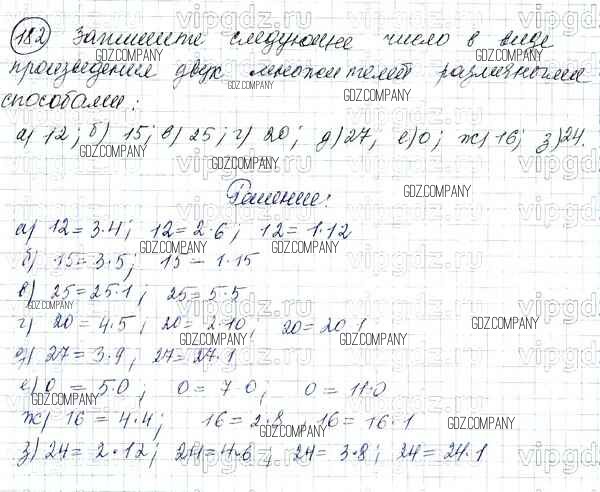 182 Запишите следующие число в виде
произведения двух множителей различными
способами:
а) 12; б) 15; в) 25; г) 20; д) 27, е) 0; ж) 16; з) 24.
Решение:
а) 12 = 3·4; 12 = 2·6; 12 = 1·12
б) 15 = 3·5; 15 = 1·15
в) 25 = 25·1; 25 = 5·5
г) 20 = 4·5; 20 = 2·10, 20 = 20 1
д) 27 = 3·9; 27 = 27·1
е) 0 = 5·0; 0 = 7 0; 0 = 11·0
ж) 16 = 4·4; 16 = 2·8 16 = 16·1
з) 24 = 2·12; 24 = 4·6; 24 = 3·8; 24 = 24·1